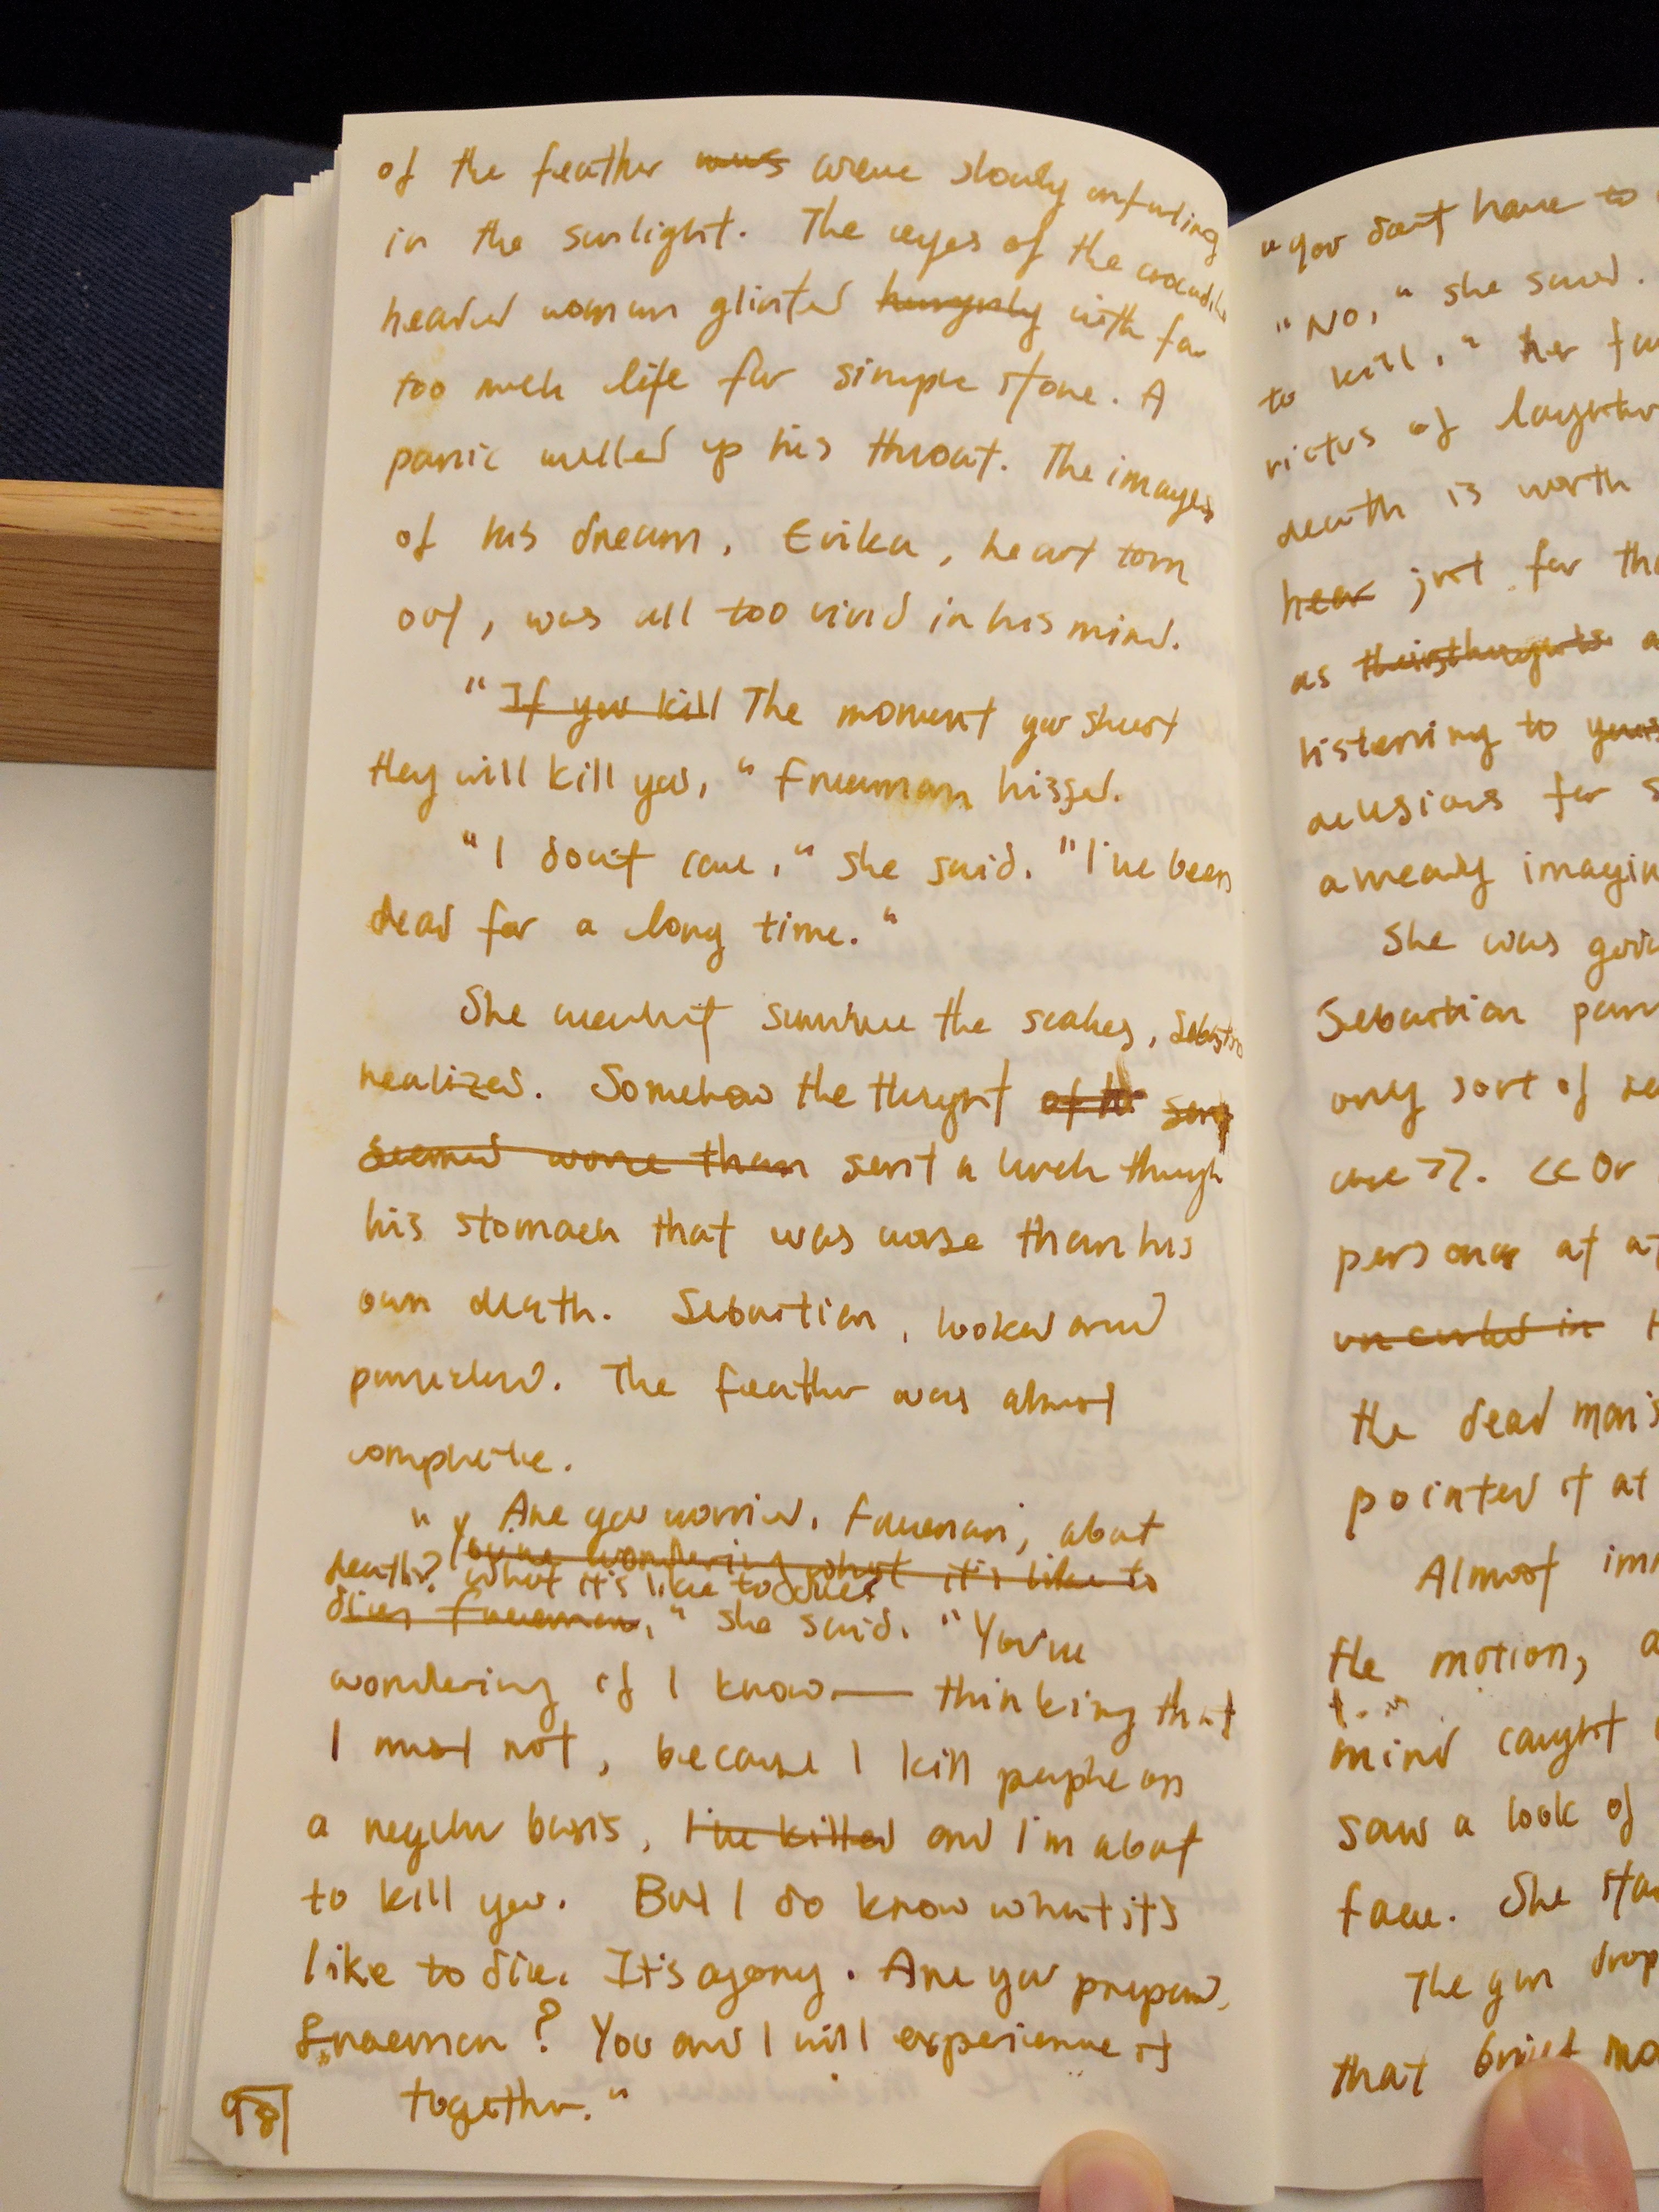 of the feather was were slowly unfurling
in the sunlight. The eyes of the crocodile
headed woman glinted hungrily with far
too much life for simple stone. A
panic welled up his throat. The images
of his dream, Erika, heart torn
out, was all too vivid in his mind.
"If you kill The moment you shoot
they will kill you," Freeman hissed.
"I don't care," she said. "I've been
dead for a long time."
She wouldn't survive the scales, Sebastian
realized. Somehow the thought of
seemed worse than sent a lurch through
his stomach that was worse than his
own death. Sebastian, looked and
panicked. The feather was almost
complete.
"Y Are you worried, Freeman, about
You're wondering what it's like to
death? What it's like to die
die, Freeman," she said. "You're
wondering if I know — thinking that
I must not, because I kill people on
a regular basis, I've killed and I'm about
to kill you. But I do know what it's
like to die. It's agony. Are you prepared,
Freeman? You and I will experience it
together."
98
"You don't have to
"No," she said.
to kill." Her
rictus of laughter
death is worth
hear just for
as
listening to
delusions for
already
She was
Sebastian
only sort of
care >>. << Or
at
in
the dead man's
pointed it at
Almost
the motion,
mind caught
saw a look of
face. She
The gun
that brief